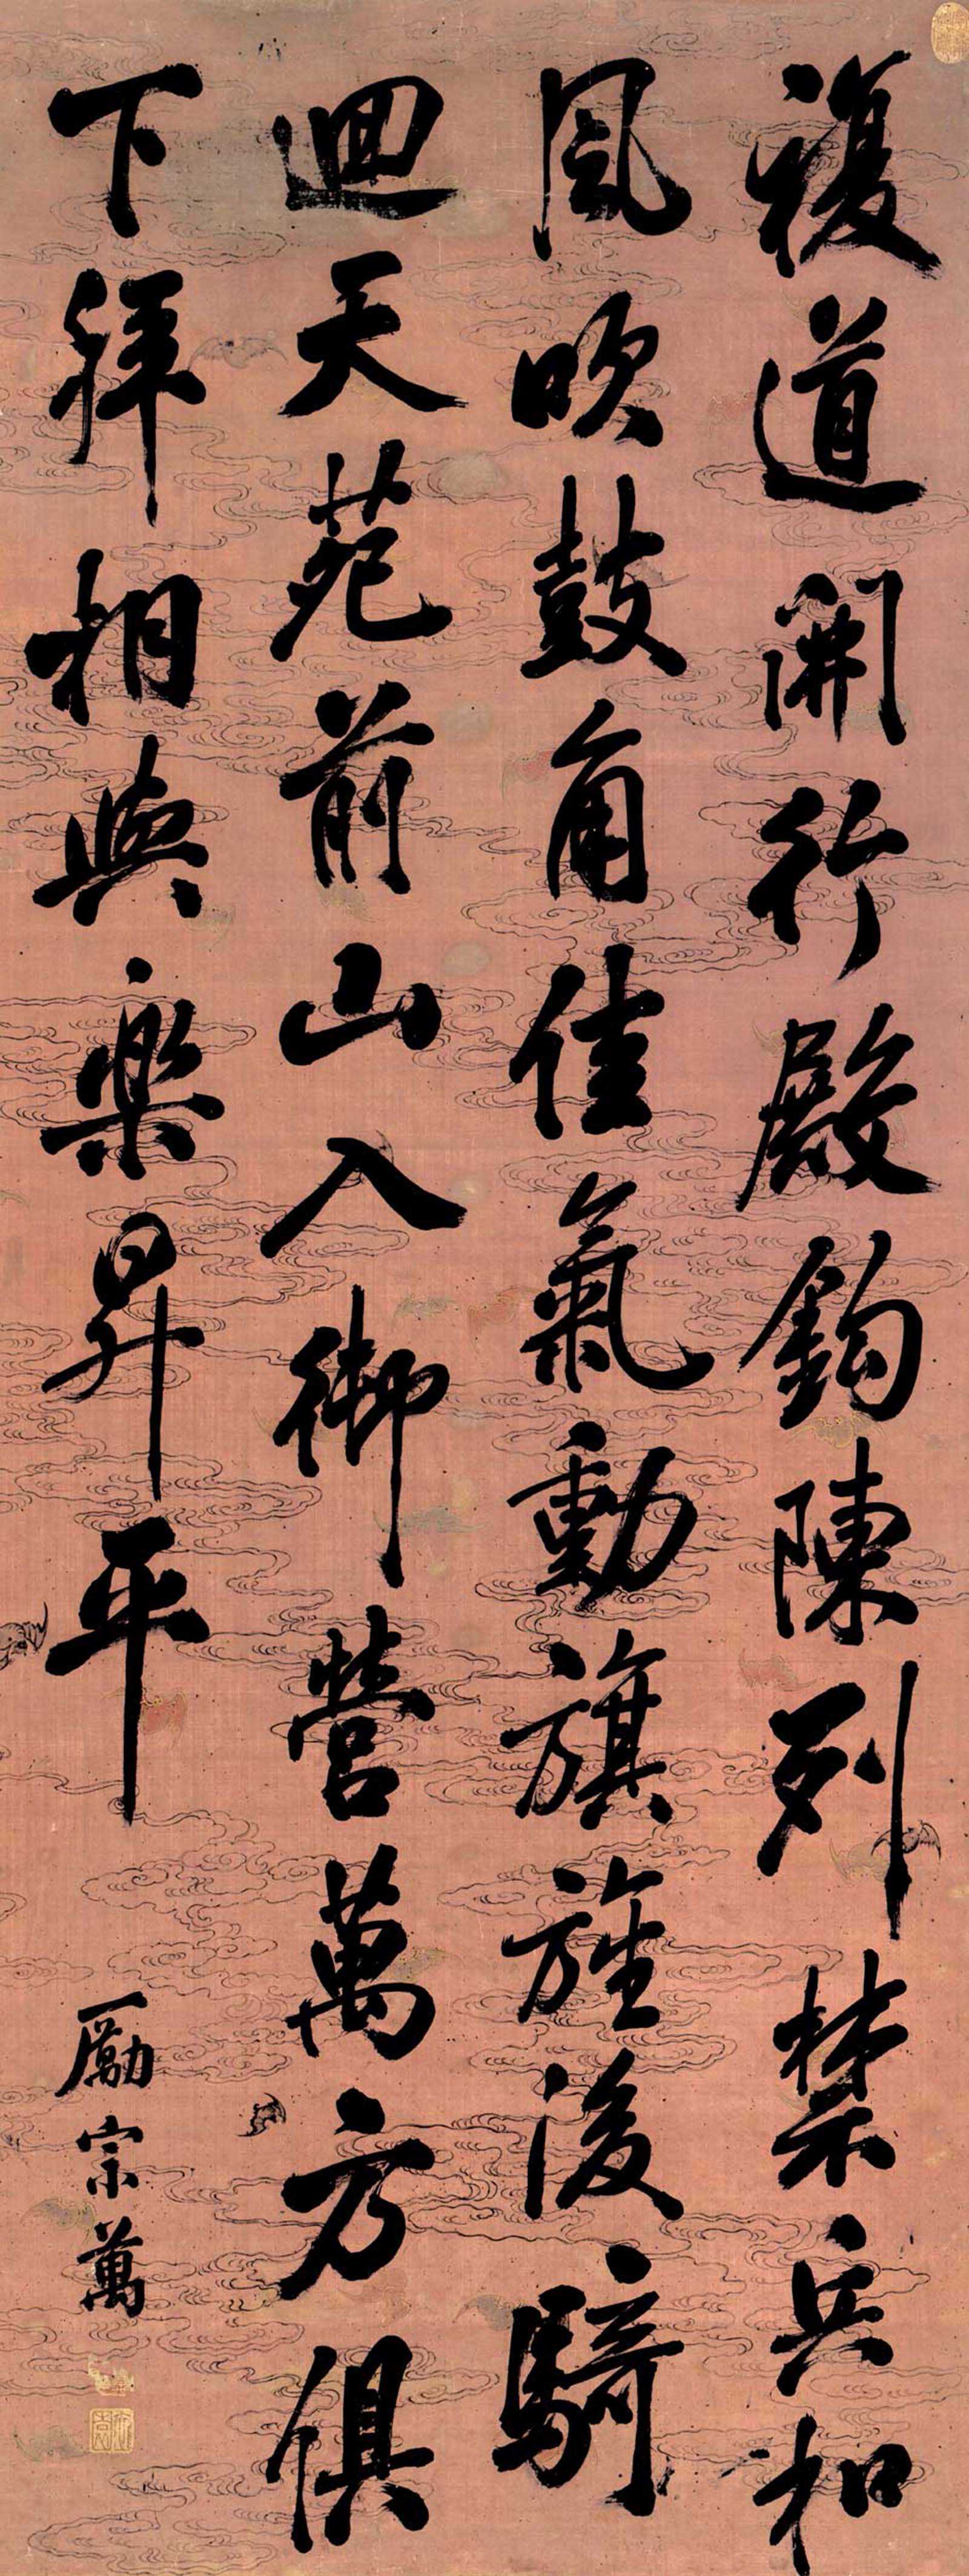 複道開行殿鈎陳列禁兵和
風吹鼓角佳氣動旗旌後騎
迴天苑前山入御營萬方俱
下拜相與樂昇平
勵宗萬